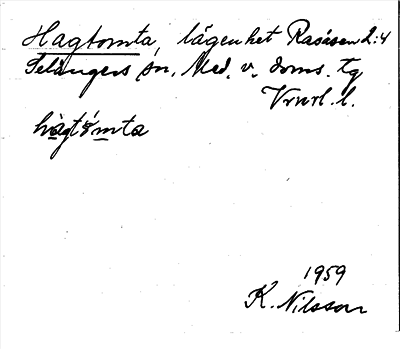 Hagtomta, lägenhet Rasåsen 2:4
Selångers sn, Med. v. doms. tg
Vrnrl. l.
hàgtòmta
1959
K. Nilsson